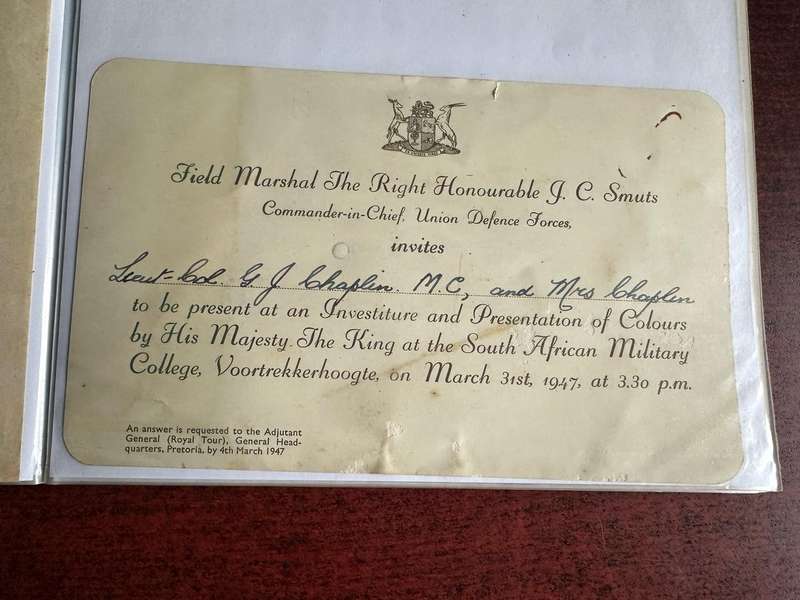 Field Marshal The Right Honourable J. C. Smuts
Commander-in-Chief, Union Defence Forces,
invites
Lieut-Col. G J Chaplin. M.C, and Mrs Chaplin
to be present at an Investiture and Presentation of Colours
by His Majesty The King at the South African Military
College, Voortrekkerhoogte, on March 31st, 1947, at 3.30 p.m.
An answer is requested to the Adjutant
General (Royal Tour), General Head-
quarters, Pretoria, by 4th March 1947